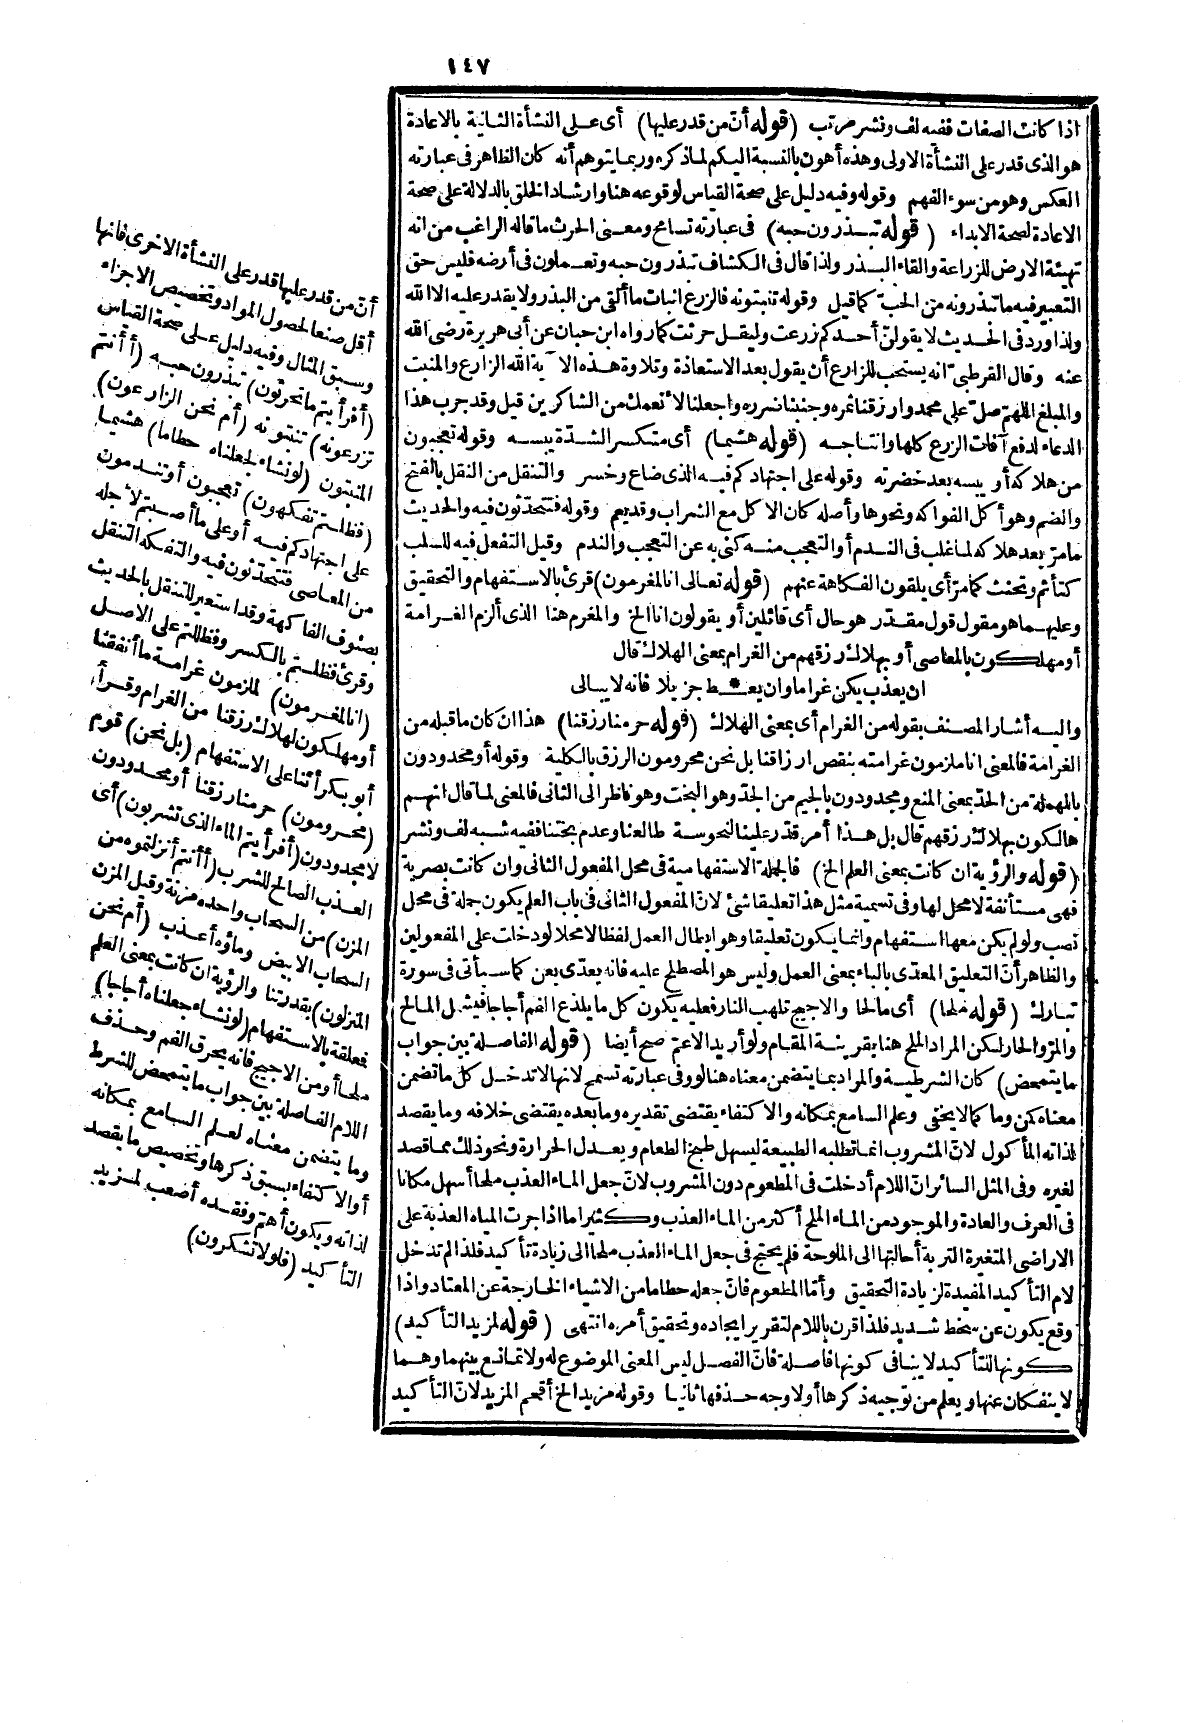 ١٤٧
اذا كانت الصفات ففيه لف ونشر مرتب (قوله أنّ من قدر عليها) أى على النشأة الثانية بالاعادة
هو الذى قدر على النشأة الاولى وهذه أهون بالنسبة اليكم لما ذكره وربما يتوهم أنه كان الظاهر فى عبارته
العكس وهو من سوء الفهم وقوله وفيه دليل على صحة القياس لوقوعه هنا وارشاد الخلق بالدلالة على صحة
الاعادة لصحة الابداء (قوله تبذرون حبه) فى عبارته تسامح ومعنى الحرث ما قاله الراغب من انه
تهيئة الارض للزراعة والقاء البذر ولذا قال فى الكشاف تبذرون حبه وتعملون فى أرضه فليس حق
التعبير فيه ما تبذرونه من الحبّ كما قيل وقوله تنبتونه فالزرع انبات ما ألقى من البذر ولا يقدر عليه الا الله
ولذا ورد فى الحديث لا يقولنّ أحدكم زرعت وليقل حرثت كما رواه ابن حبان عن أبى هريرة رضى الله
عنه وقال القرطبىّ انه يستحب للزارع أن يقول بعد الاستعاذة وتلاوة هذه الآية الله الزارع والمنبت
والمبلغ اللهمّ صلّ على محمد وارزقنا ثمره وجنبنا ضرره واجعلنا لأنعمك من الشاكرين قيل وقد جرب هذا
الدعاء لدفع آفات الزرع كلها وانتاجه (قوله هشيما) أى متكسر الشدّة يبسه وقوله تعجبون
من هلاكه أو يبسه بعد خضرته وقوله على اجتهادكم فيه الذى ضاع وخسر والتنقل من النقل بالفتح
والضم وهو أكل الفواكه ونحوها وأصله كان الاكل مع الشراب وقديم وقوله فتتحدّثون فيه والحديث
مامرّ بعد هلاكه لما غلب فى الندم أو التعجب منه كنى به عن التعجب والندم وقيل التفعل فيه للسلب
كتأثم وتحنث كما مرّ أى يلقون الفكاهة عنهم (قوله تعالى انا لمغرمون) قرئ بالاستفهام والتحقيق
وعليهما هو مقول قول مقدّر هو حال أى قائلين أو يقولون انا الخ والمغرم هنا الذى ألزم الغرامة
أو مهلكون بالمعاصى أو بهلاك رزقهم من الغرام بمعنى الهلاك قال
ان يعذب يكن غراما وان يعـ * ـط جزيلا فانه لا يبالى
واليه أشار المصنف بقوله من الغرام أى بمعنى الهلاك (قوله حرمنا رزقنا) هذا ان كان ما قبله من
الغرامة فالمعنى انا ملزمون غرامته بنقص ارزاقنا بل نحن محرومون الرزق بالكلية وقوله أو محدودون
بالمهملة من الحدّ بمعنى المنع ومجدودون بالجيم من الجدّ وهو البخت وهو ناظر الى الثانى فالمعنى لما قال انهم
هالكون بهلاك رزقهم قال بل هذا أمر قدّر علينا لنحوسة طالعنا وعدم بختنا ففيه شبه لف ونشر
(قوله والرؤية ان كانت بمعنى العلم الخ) فالجملة الاستفهامية فى محل المفعول الثانى وان كانت بصرية
فهى مستأنفة لا محل لها وفى تسمية مثل هذا تعليقا شئ لانّ المفعول الثانى فى باب العلم يكون جملة فى محل
نصب ولو لم يكن معها استفهام وانما يكون تعليقا وهو ابطال العمل لفظا لا محلا لو دخلت على المفعولين
والظاهر أنّ التعليق المعدّى بالباء بمعنى العمل وليس هو المصطلح عليه فانه يعدّى بعن كما سيأتى فى سورة
تبارك (قوله ملحا) أى مالحا والاجيج تلهب النار فعليه يكون كل ما يلذع الفم أجاجا فيشمل المالح
والمرّ والحار لكن المراد الملح هنا بقرينة المقام ولو أريد الاعمّ صح أيضا (قوله الفاصلة بين جواب
ما يتمحض) كان الشرطية والمراد بما يتضمن معناه هنا لو وفى عبارته تسمح لانها لا تدخل كل ما تضمن
معناه كمن وما كما لا يخفى وعلم السامع بمكانه والاكتفاء يقتضى تقديره وما بعده يقتضى خلافه وما يقصد
لذاته المأكول لانّ المشروب انما تطلبه الطبيعة ليسهل طبخ الطعام ويعدل الحرارة ونحو ذلك مما قصد
لغيره وفى المثل السائر انّ اللام أدخلت فى المطعوم دون المشروب لانّ جعل الماء العذب ملحا أسهل مكانا
فى العرف والعادة والموجود من الماء الملح أكثر من الماء العذب وكثيرا ما اذا جرت المياه العذبة على
الاراضى المتغيرة التربة أحالتها الى الملوحة فلم يحتج فى جعل الماء العذب ملحا الى زيادة تأكيد فلذا لم تدخل
لام التأكيد المفيدة لزيادة التحقيق وأمّا المطعوم فانّ جعله حطاما من الاشياء الخارجة عن المعتاد واذا
وقع يكون عن سخط شديد فلذا قرن باللام لتقرير ايجاده وتحقيق أمره انتهى (قوله لمزيد التأكيد)
كونها للتأكيد لا ينافى كونها فاصلة فانّ الفصل ليس المعنى الموضوع له ولا تمانع بينهما وهما
لا ينفكان عنها ويعلم من توجيه ذكرها أولا وجه حذفها ثانيا وقوله مزيد الخ أقحم المزيد لانّ التأكيد
أنّ من قدر عليها قدر على النشأة الاخرى فانها
أقل صنعا لحصول الموادّ وتخصيص الاجزاء
وسبق المثال وفيه دليل على صحة القياس
(أفرأيتم ما تحرثون) تبذرون حبه (أأنتم
تزرعونه) تنبتونه (أم نحن الزارعون)
المنبتون (لو نشاء لجعلناه حطاما) هشيما
(فظلتم تفكهون) تعجبون أو تندمون
على اجتهادكم فيه أو على ما أصبتم لأجله
من المعاصى فتتحدّثون فيه والتفكه التنقل
بصنوف الفاكهة وقد استعير للتنقل بالحديث
وقرئ فظلتم بالكسر وفظللتم على الاصل
(انا لمغرمون) لملزمون غرامة ما أنفقنا
أو مهلكون لهلاك رزقنا من الغرام وقرأ
أبو بكر أئنا على الاستفهام (بل نحن) قوم
(محرومون) حرمنا رزقنا أو محدودون
لا مجدودون (أفرأيتم الماء الذى تشربون) أى
العذب الصالح للشرب (أأنتم أنزلتموه من
المزن) من السحاب واحده مزنة وقيل المزن
السحاب الابيض وماؤه أعذب (أم نحن
المنزلون) بقدرتنا والرؤية ان كانت بمعنى العلم
فعلقة بالاستفهام (لو نشاء جعلناه أجاجا)
ملحا أو من الاجيج فانه يحرق الفم وحذف
اللام الفاصلة بين جواب ما يتمحض للشرط
وما يتضمن معناه لعلم السامع بمكانه
أو الاكتفاء بسبق ذكرها وتخصيص ما يقصد
لذاته ويكون أهمّ وفقده أصعب لمزيد
التأكيد (فلولا تشكرون)